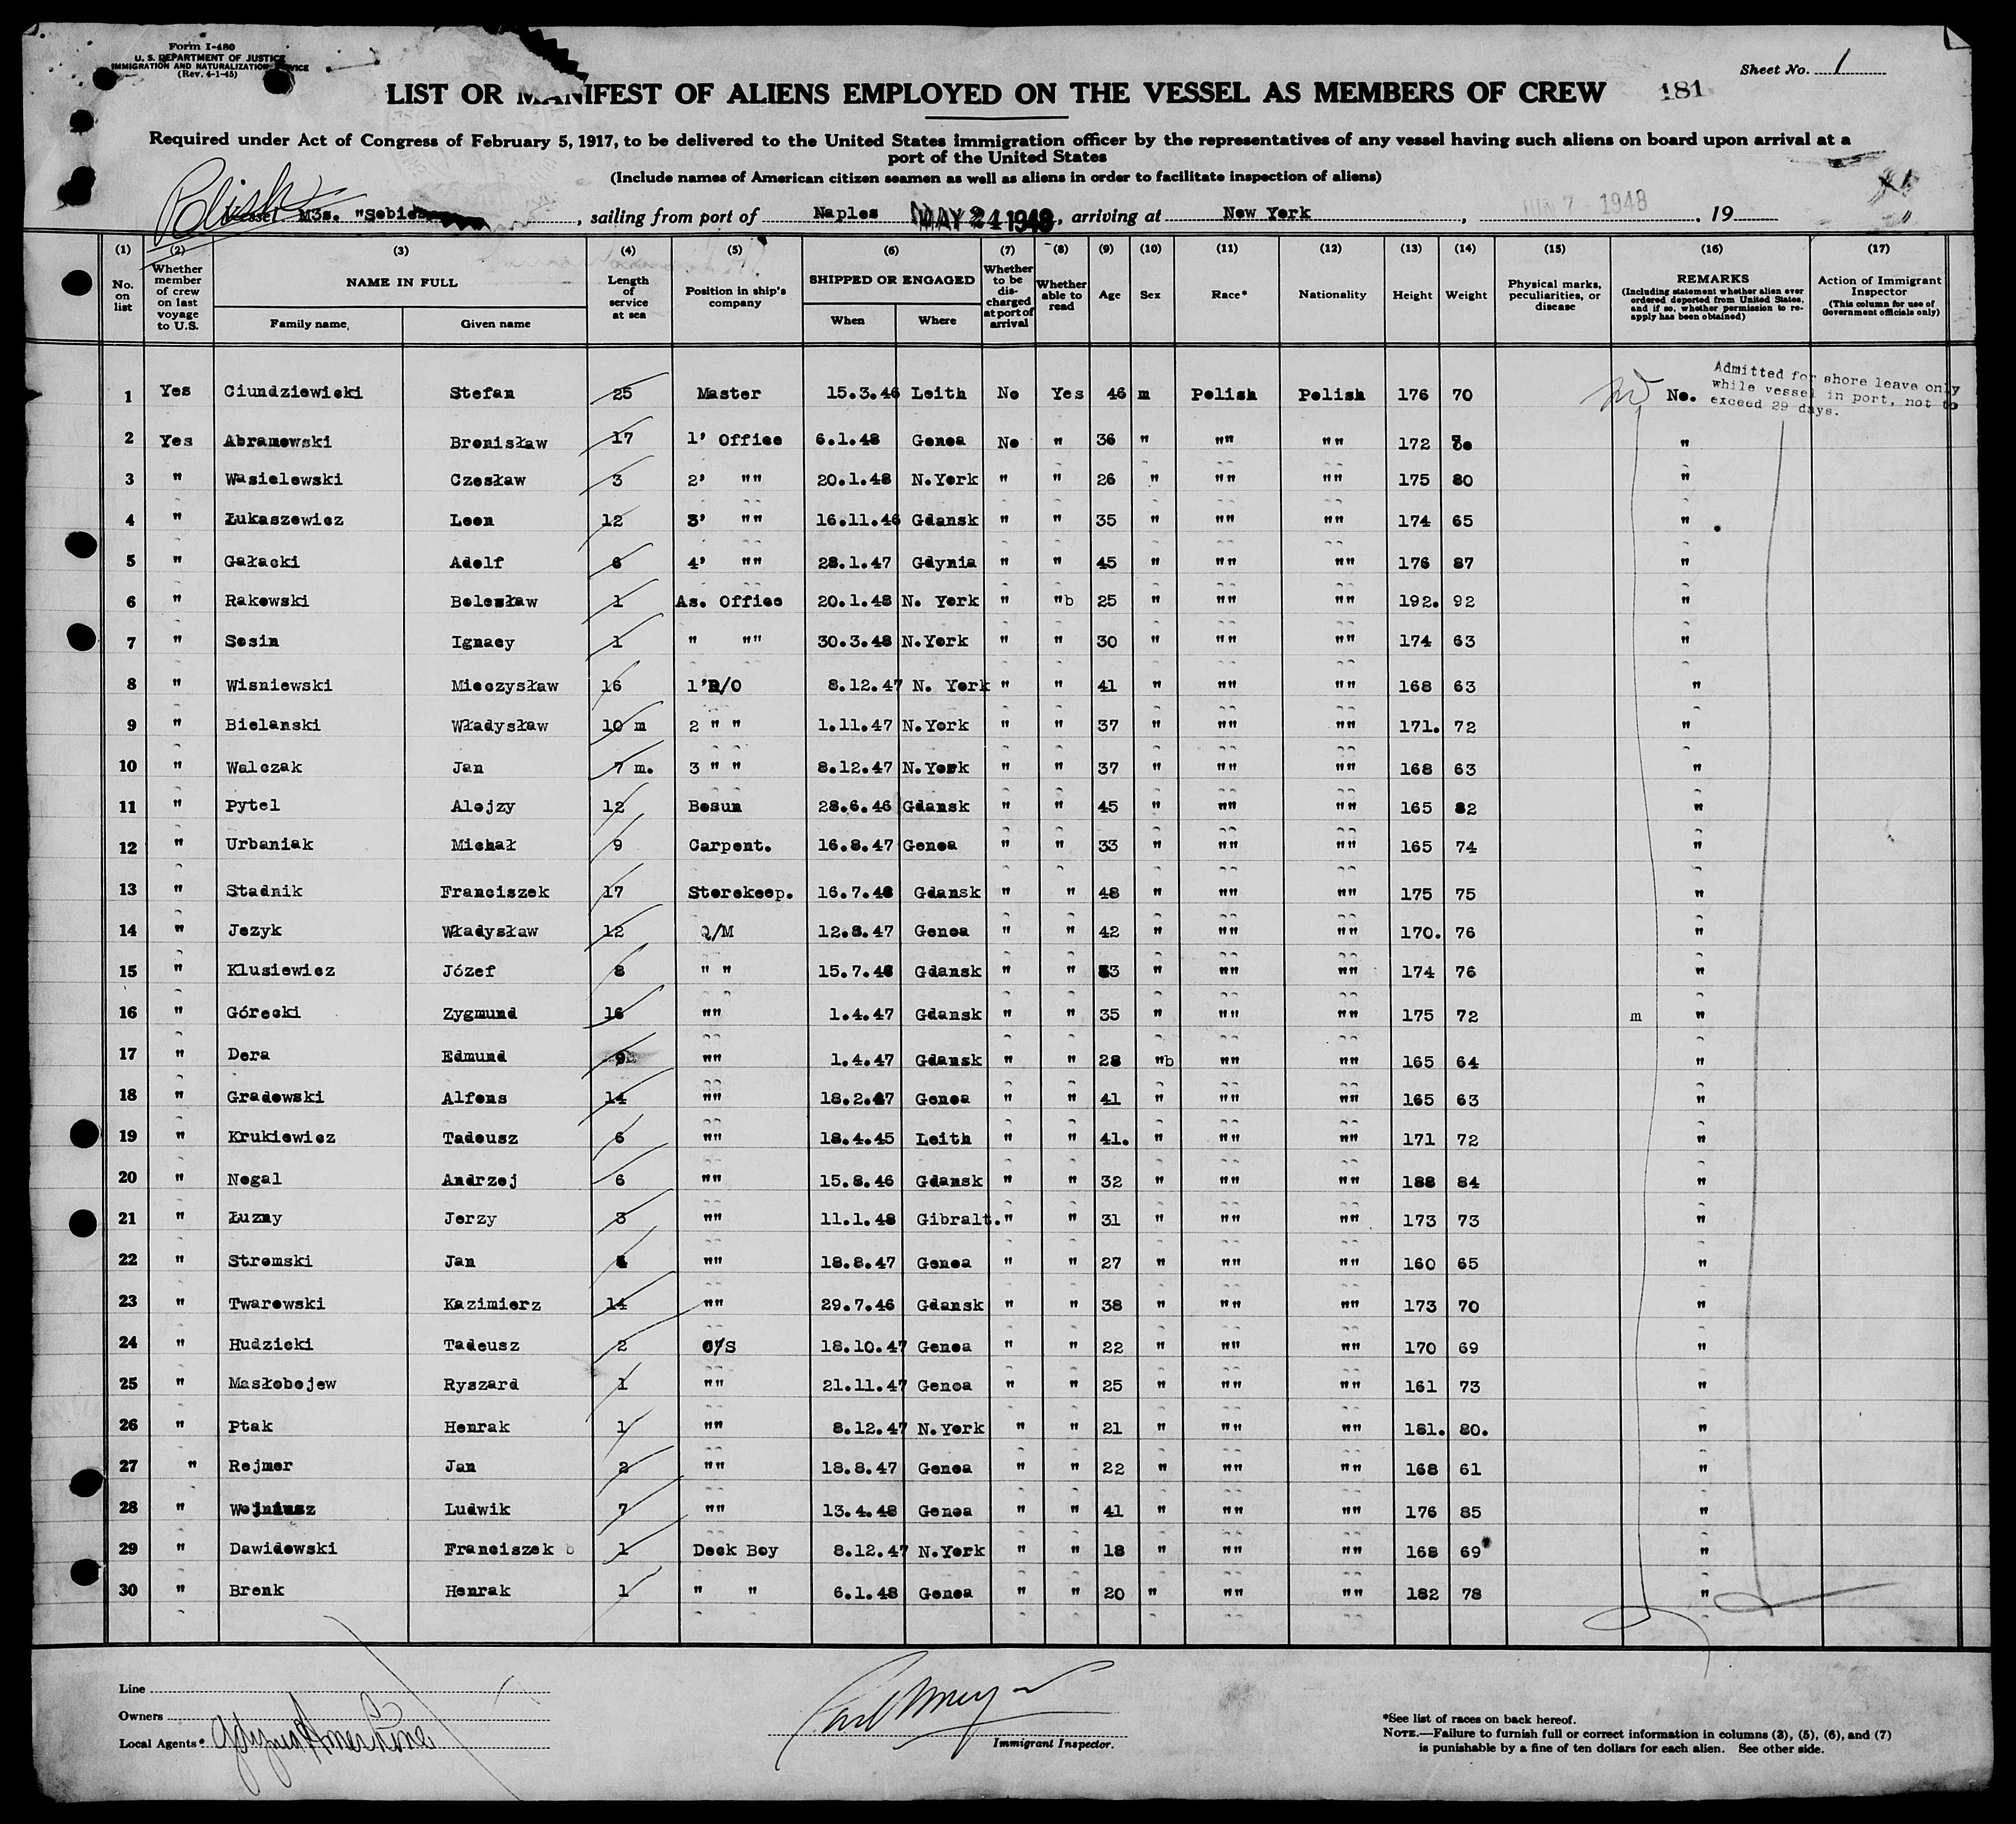 Form I-480
U. S. DEPARTMENT OF JUSTICE
IMMIGRATION AND NATURALIZATION SERVICE
(Rev. 4-1-45)
Sheet No. 1
LIST OR MANIFEST OF ALIENS EMPLOYED ON THE VESSEL AS MEMBERS OF CREW 181
Required under Act of Congress of February 5, 1917, to be delivered to the United States immigration officer by the representatives of any vessel having such aliens on board upon arrival at a
port of the United States
(Include names of American citizen seamen as well as aliens in order to facilitate inspection of aliens)
Polish
Vessel M3s. "Sobie , sailing from port of Naples MAY 24 1948, arriving at New York , JUN 7 - 1948 , 19
(1) (2) (3) (4) (5) (6) (7) (8) (9) (10) (11) (12) (13) (14) (15) (16) (17)
No. on list Whether member of crew on last voyage to U.S. NAME IN FULL Family name Given name Length of service at sea Position in ship's company SHIPPED OR ENGAGED When Where Whether to be discharged at port of arrival Whether able to read Age Sex Race* Nationality Height Weight Physical marks, peculiarities, or disease REMARKS (Including statement whether alien ever ordered deported from United States, and if so, whether permission to reapply has been obtained) Action of Immigrant Inspector (This column for use of Government officials only)
Admitted for shore leave only
while vessel in port, not to
exceed 29 days.
1 Yes Ciundziewieki Stefan 25 Master 15.3.46 Leith No Yes 46 m Polish Polish 176 70 No.
2 Yes Abramowski Bronisław 17 1' Office 6.1.48 Genoa No " 36 " "" "" 172 "
3 " Wasielewski Czesław 3 2' "" 20.1.48 N.York " " 26 " "" "" 175 80 "
4 " Łukaszewicz Leon 12 3' "" 16.11.46 Gdansk " " 35 " "" "" 174 65 "
5 " Gałacki Adolf 6 4' "" 28.1.47 Gdynia " " 45 " "" "" 176 87 "
6 " Rakowski Bolesław 1 As. Office 20.1.48 N. York " "b 25 " "" "" 192. 92 "
7 " Sosin Ignacy 1 " "" 30.3.48 N.York " " 30 " "" "" 174 63 "
8 " Wisniewski Mieczysław 16 1'R/O 8.12.47 N. York " " 41 " "" "" 168 63 "
9 " Bielanski Władysław 10 m 2 " " 1.11.47 N.York " " 37 " "" "" 171. 72 "
10 " Walczak Jan 7 m. 3 " " 8.12.47 N.York " " 37 " "" "" 168 63 "
11 " Pytel Alojzy 12 Bosun 28.6.46 Gdansk " " 45 " "" "" 165 82 "
12 " Urbaniak Michał 9 Carpent. 16.8.47 Genoa " " 33 " "" "" 165 74 "
13 " Stadnik Franciszek 17 Storekeep. 16.7.46 Gdansk " " 48 " "" "" 175 75 "
14 " Jezyk Władysław 12 Q/M 12.8.47 Genoa " " 42 " "" "" 170. 76 "
15 " Klusiewicz Józef 8 " " 15.7.46 Gdansk " " " "" "" 174 76 "
16 " Górecki Zygmund 16 "" 1.4.47 Gdansk " " 35 " "" "" 175 72 m "
17 " Dera Edmund 9 "" 1.4.47 Gdansk " " 28 "b "" "" 165 64 "
18 " Gradowski Alfons 14 "" 18.2.47 Genoa " " 41 " "" "" 165 63 "
19 " Krukiewicz Tadeusz 6 "" 18.4.45 Leith " " 41. " "" "" 171 72 "
20 " Nogal Andrzej 6 "" 15.8.46 Gdansk " " 32 " "" "" 188 84 "
21 " Łuzny Jerzy 3 "" 11.1.48 Gibralt. " " 31 " "" "" 173 73 "
22 " Stromski Jan "" 18.8.47 Genoa " " 27 " "" "" 160 65 "
23 " Twarowski Kazimierz 14 "" 29.7.46 Gdansk " " 38 " "" "" 173 70 "
24 " Hudzicki Tadeusz 2 O/S 18.10.47 Genoa " " 22 " "" "" 170 69 "
25 " Masłobojew Ryszard 1 "" 21.11.47 Genoa " " 25 " "" "" 161 73 "
26 " Ptak Henrak 1 "" 8.12.47 N.York " " 21 " "" "" 181. 80. "
27 " Rejmer Jan 2 "" 18.8.47 Genoa " " 22 " "" "" 168 61 "
28 " Wojniusz Ludwik 7 "" 13.4.48 Genoa " " 41 " "" "" 176 85 "
29 " Dawidowski Franciszek b 1 Deck Boy 8.12.47 N.York " " 18 " "" "" 168 69 "
30 " Bronk Henrak 1 " " 6.1.48 Genoa " " 20 " "" "" 182 78 "
Line
Owners
Local Agents* Gdynia Amer Line
Immigrant Inspector.
*See list of races on back hereof.
NOTE.—Failure to furnish full or correct information in columns (3), (5), (6), and (7)
is punishable by a fine of ten dollars for each alien. See other side.